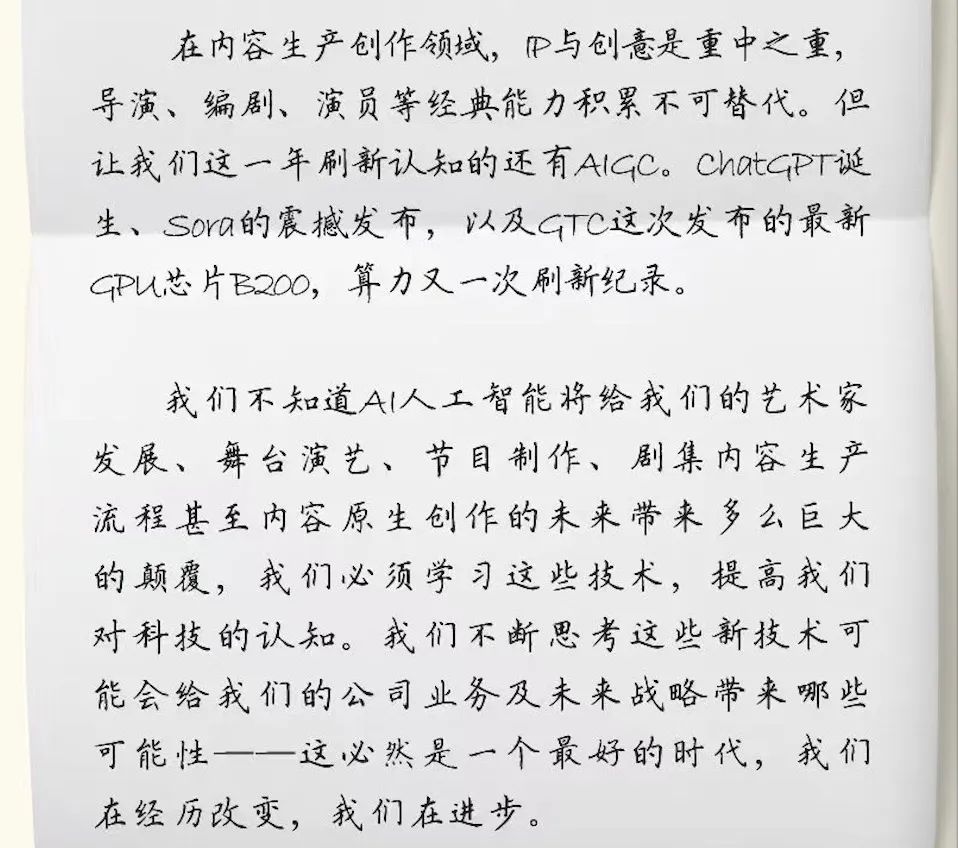 在内容生产创作领域，IP与创意是重中之重，
导演、编剧、演员等经典能力积累不可替代。但
让我们这一年刷新认知的还有AIGC。ChatGPT诞
生、Sora的震撼发布，以及GTC这次发布的最新
GPU芯片B200，算力又一次刷新纪录。
我们不知道AI人工智能将给我们的艺术家
发展、舞台演艺、节目制作、剧集内容生产
流程甚至内容原生创作的未来带来多么巨大
的颠覆，我们必须学习这些技术，提高我们
对科技的认知。我们不断思考这些新技术可
能会给我们的公司业务及未来战略带来哪些
可能性——这必然是一个最好的时代，我们
在经历改变，我们在进步。